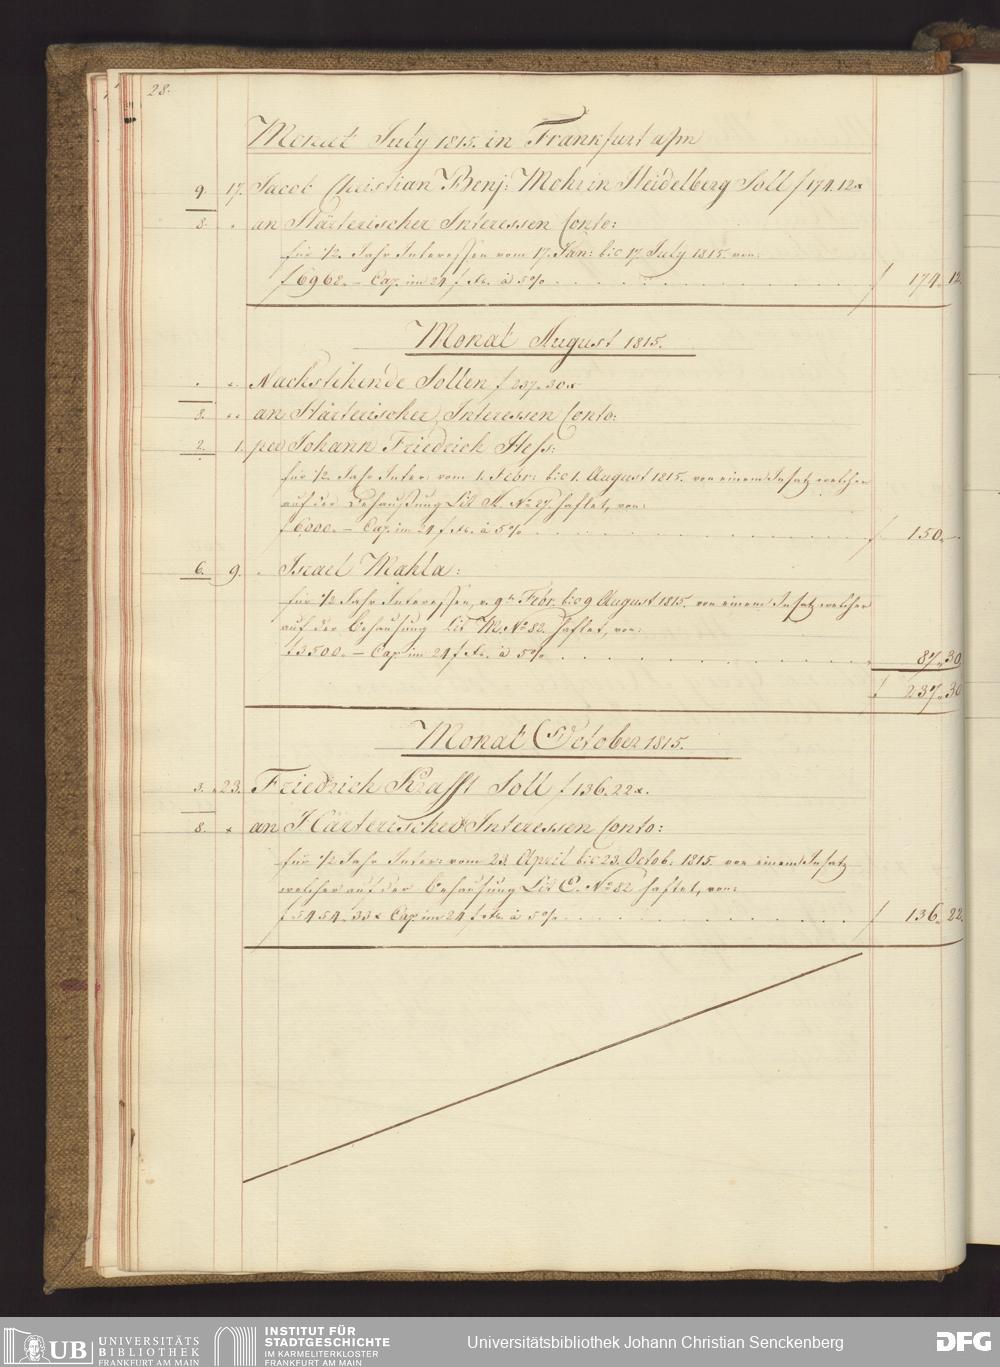 28.
Monat July 1815. in Frankfurt a/m
9. 17. Jacob Christian Benj: Mohr in Heidelberg Soll f 174.12x
8. " an Härterischer Interessen Conto:
für 1/2 Jahr Interessen vom 17. Jan: bis 17. July 1815. von:
f 6968. — Cap. im 24 f Fs. à 5% . . . . f 174. 12.
Monat August 1815.
" " Nachstehende Sollen f 237. 30x
8. " " an Härterischer Interessen Conto:
2. 1. per Johann Friedrich Hess:
für 1/2 Jahr Inter: vom 1. Febr: bis 1. August 1815. von einem Insatz welcher
auf der Behaußung Lit. No 27. haftet, von:
f 6000. — Cap. im 24 f Fs. à 5% . . . . f 150. —.
6. 9. " Israel Mahla:
für 1/2 Jahr Interessen, v. 9ten Febr. bis 9 August 1815. von einem Insatz welcher
auf der Behausung Lit M. No 82. haftet, von:
f 3500. — Cap. im 24 f Fs. à 5% . . . . " 87. 30.
f 237. 30
Monat October 1815.
3. 23. Friedrich Krafft Soll f 136. 22x.
8. " an Härterischer Interessen Conto:
für 1/2 Jahr Inter: vom 23 April bis 23. Octob. 1815. von einem Insatz
welcher auf der Behausung Lit C. No 82 haftet, von:
f 5454. 33x Cap. im 24 f Fs. à 5% . . . . f 136. 22.
UB UNIVERSITÄTS
BIBLIOTHEK
FRANKFURT AM MAIN
INSTITUT FÜR
STADTGESCHICHTE
IM KARMELITERKLOSTER
FRANKFURT AM MAIN
Universitätsbibliothek Johann Christian Senckenberg
DFG